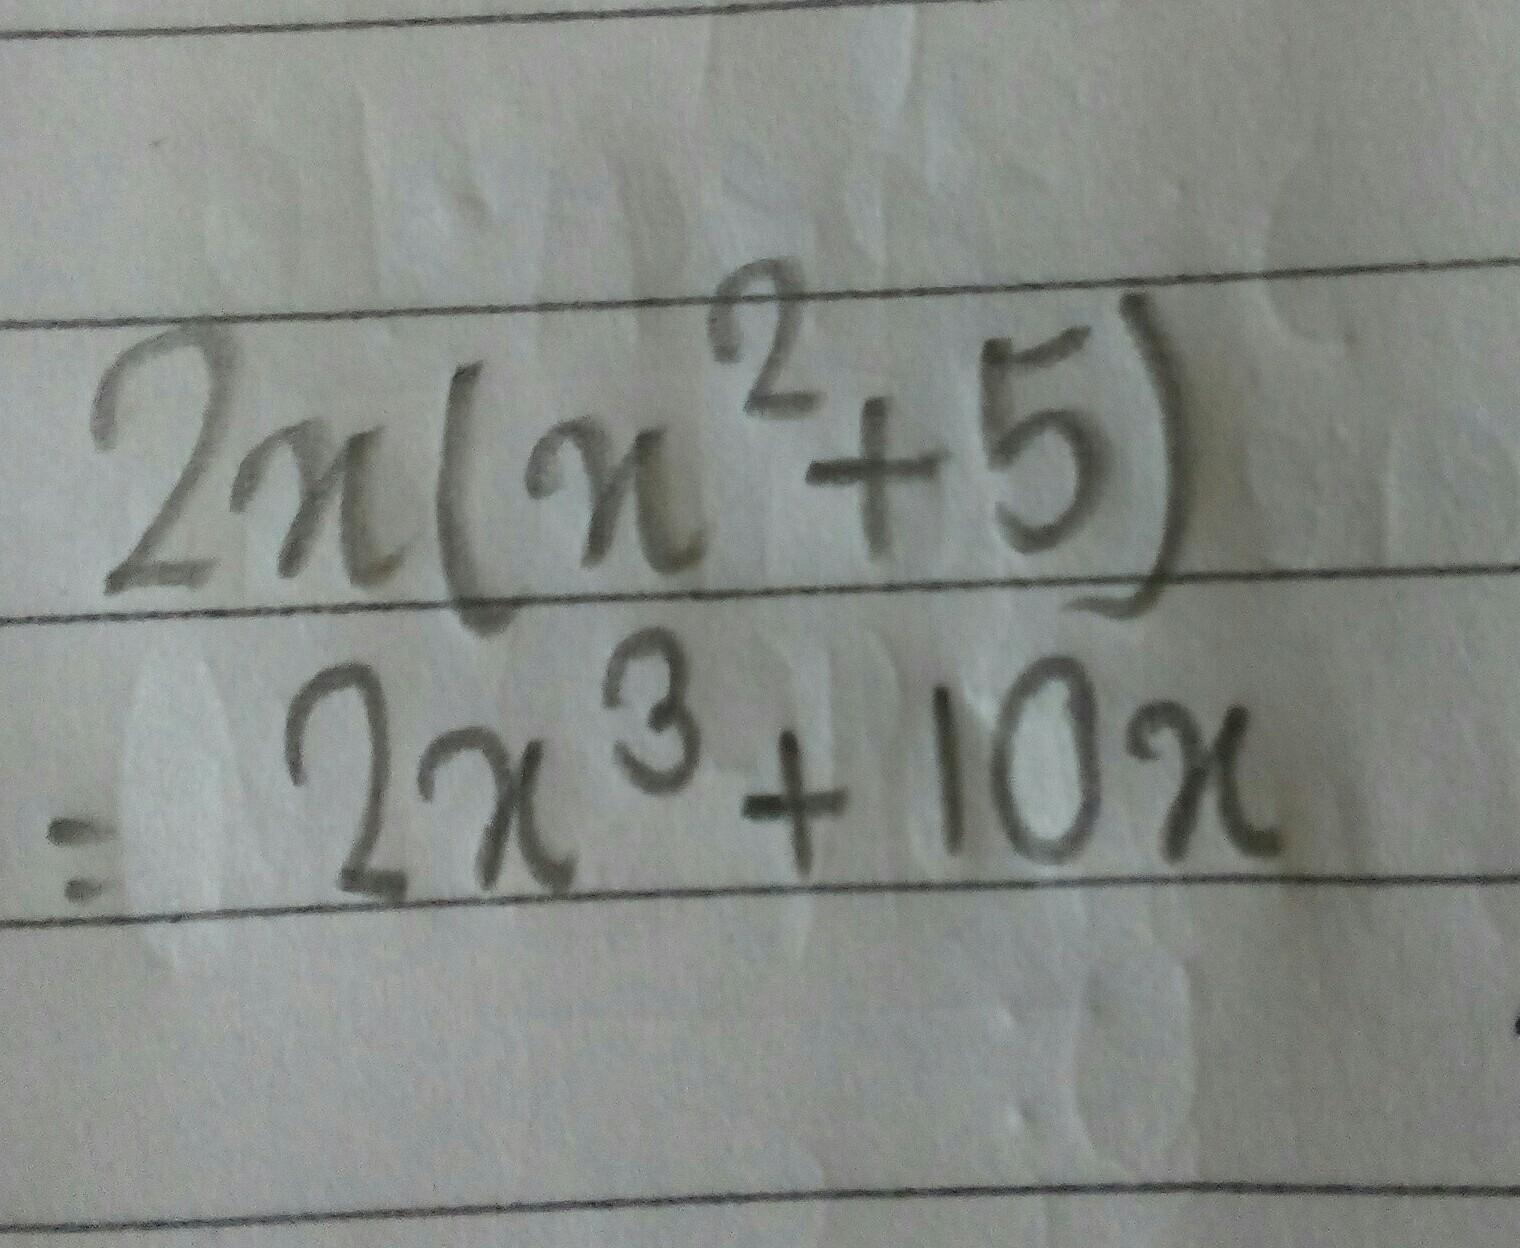 2x(x²+5)
= 2x³+10x